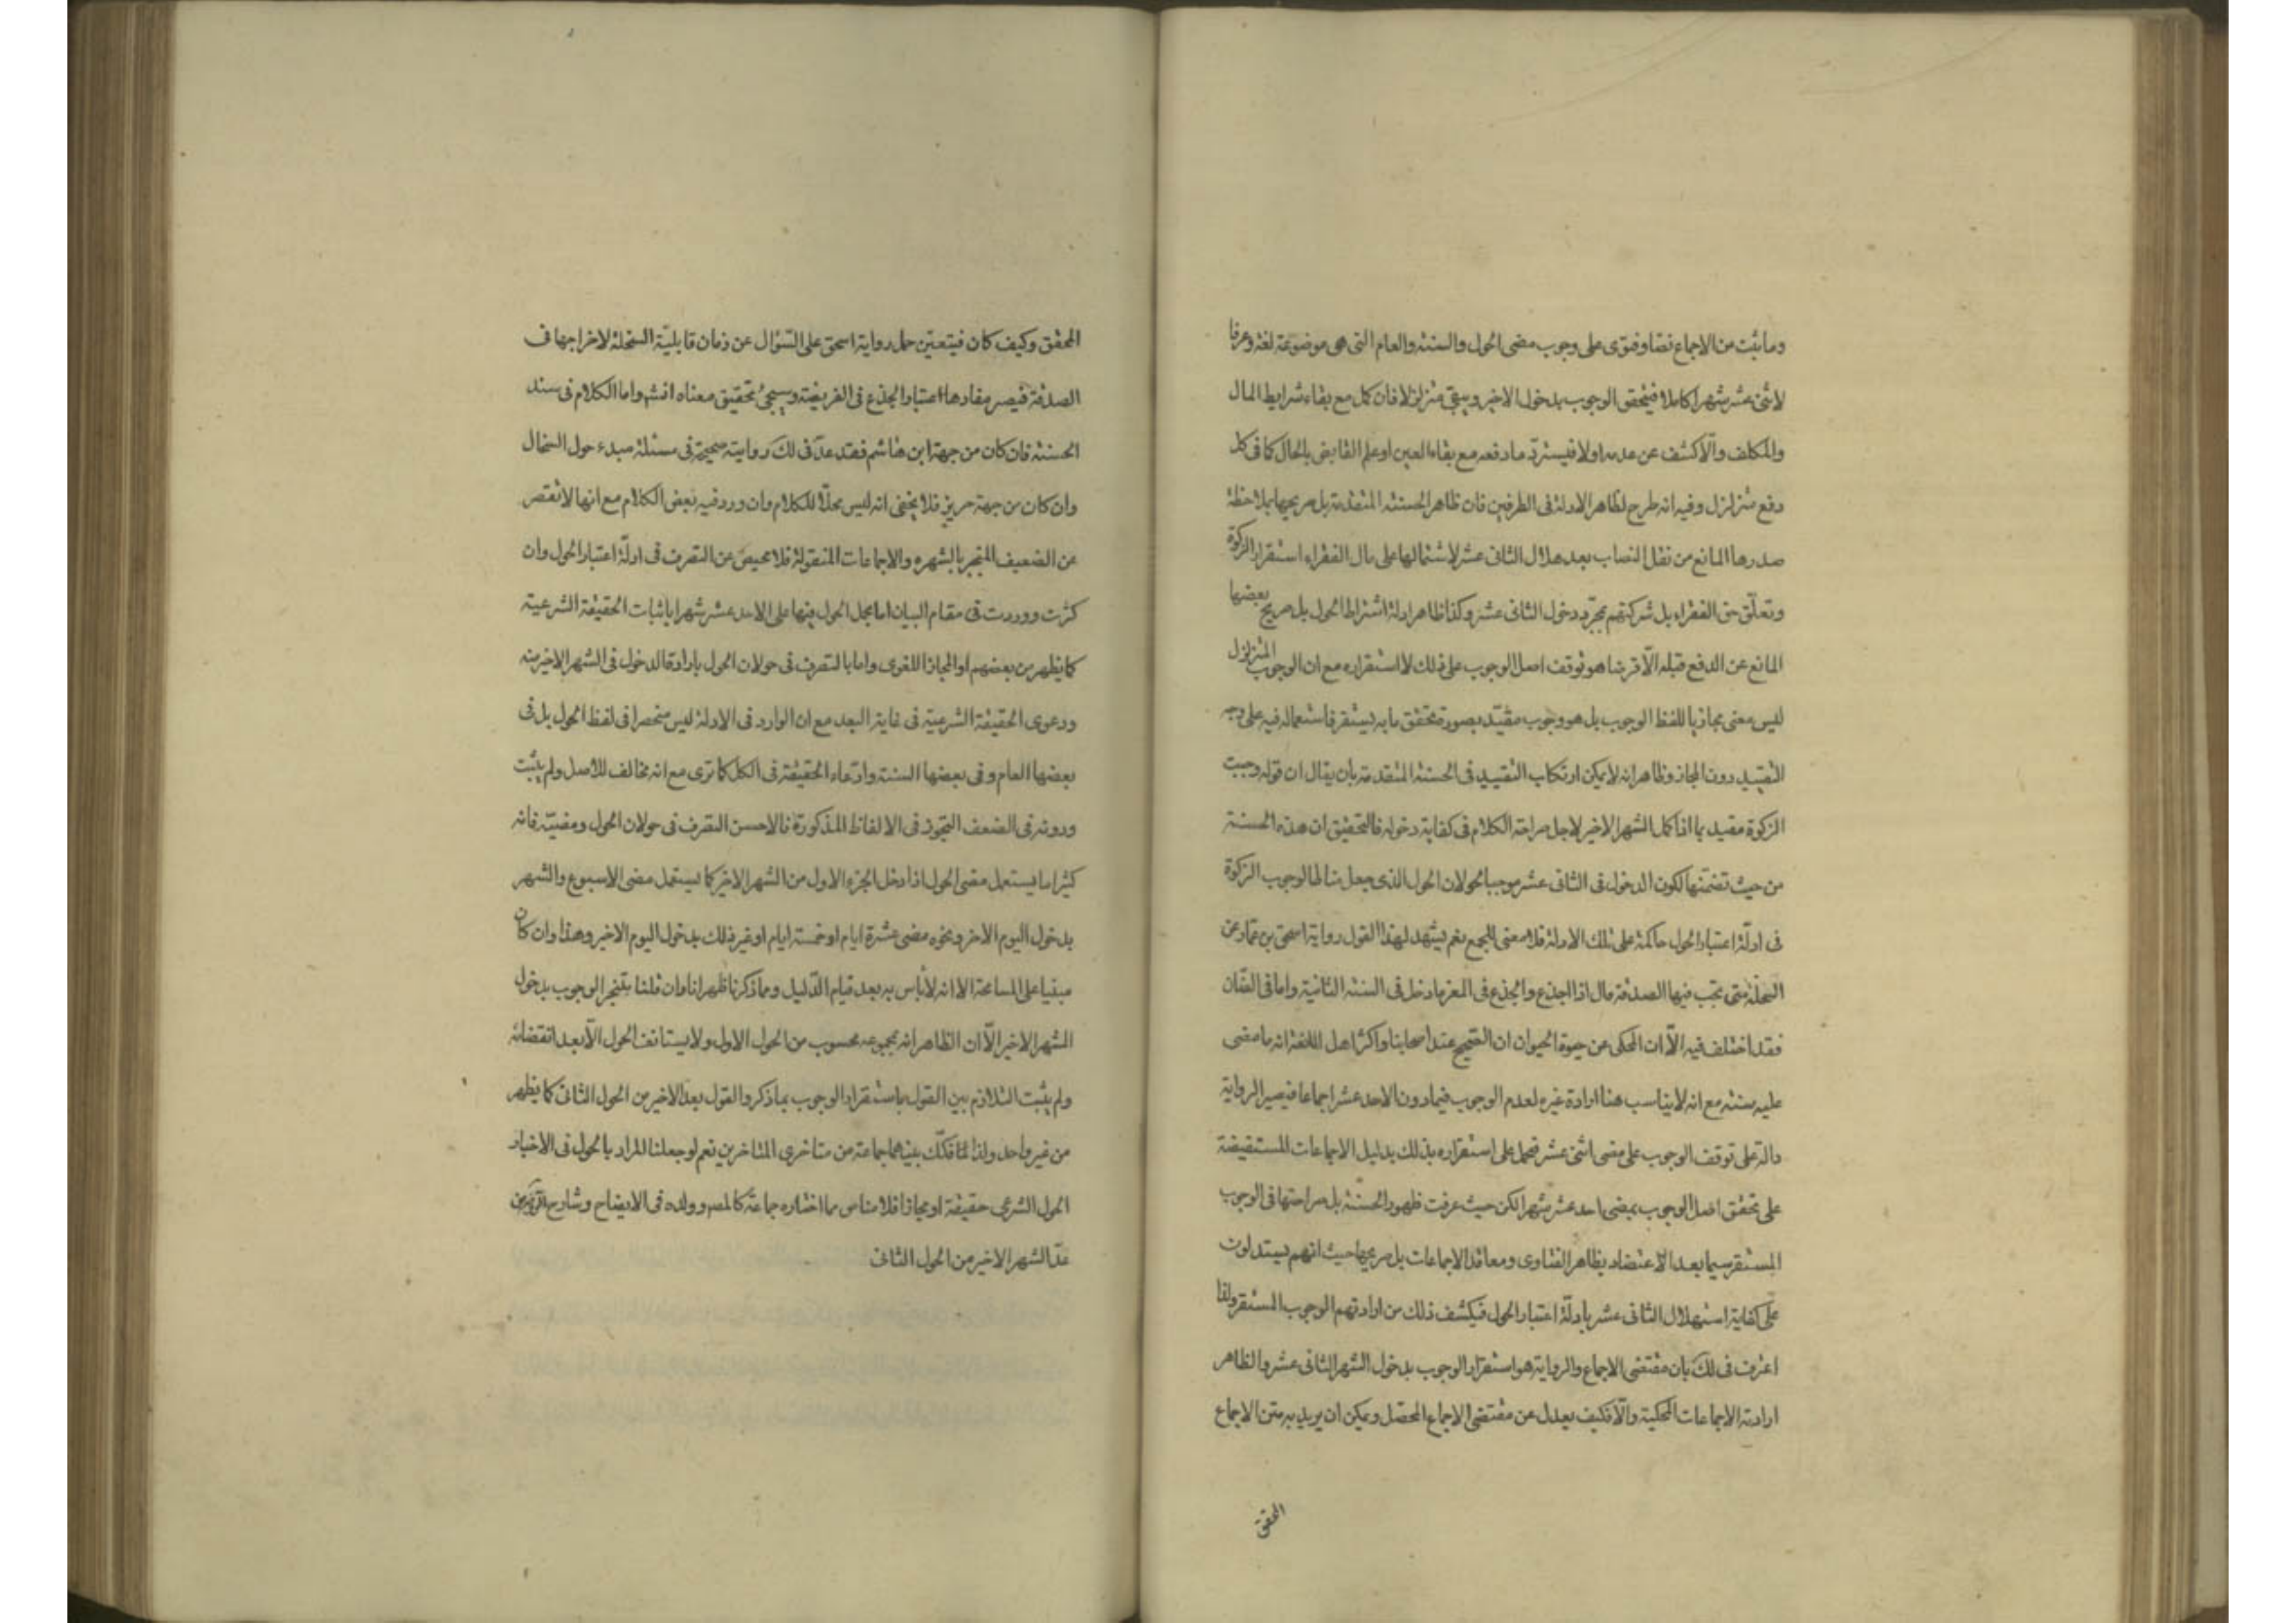 وما ثبت من الاجماع نصا وفتوى على وجوب مضى الحول والسنة والعام التى هى موضوعة لغة وعرفا
لاثنى عشر شهرا كاملا فيتحقق الوجوب بدخول الاخير ويبقى متزلزلا فان كمل مع بقاء شرايط المال
والمكلف والّا كشف عن عدمه اولا فيستردّ ما دفعه مع بقاء العين او علم القابض بالحال كما فى كل
دفع متزلزل وفيه انه طرح لظاهر الادلة فى الطرفين فان ظاهر الحسنة المتقدمة بل صريحها بملاحظة
صدرها المانع من نقل النصاب بعد هلال الثانى عشر لاشتمالها على مال الفقراء استقرار الزكوة
وتعلّق حق الفقراء بل شركتهم بمجرّد دخول الثانى عشر وكذا ظاهر ادلة اشتراط الحول بل صريح بعضها
المانع عن الدفع قبله الّا قرضا هو توقف اصل الوجوب على ذلك لا استقراره مع ان الوجوب المتزلزل
ليس معنى مجازيا للفظ الوجوب بل هو وجوب مقيّد بصورة تحقق ما به يستقر فاستعماله فيه على وجه
التقييد دون المجاز وظاهر انه لا يمكن ارتكاب التقييد فى الحسنة المتقدمة بان يقال ان قوله وجبت
الزكوة مقيد بما اذا كمل الشهر الاخير لاجل صراحة الكلام فى كفاية دخوله فالتحقيق ان هذه الحسنة
من حيث تضمّنها لكون الدخول فى الثانى عشر موجبا لحولان الحول الذى جعل مناطا لوجوب الزكوة
فى ادلّة اعتبار الحول حاكمة على تلك الادلة فلا معنى للجمع نعم يشهد لهذا القول رواية اسحق بن عمار عن
السخلة متى تجب فيها الصدقة قال اذا اجذع والجذع فى المعز ما دخل فى السنة الثانية واما فى الضان
فقد اختلف فيه الّا ان المحكى عن حيوة الحيوان ان الصّحيح عند اصحابنا واكثر اهل اللغة انه ما مضى
عليه سنة مع انه لا يناسب هنا ارادة غيره لعدم الوجوب فيما دون الاحد عشر اجماعا فيصير الرواية
دالة على توقف الوجوب على مضى اثنى عشر فيحمل على استقراره بذلك بدليل الاجماعات المستفيضة
على تحقق اصل الوجوب بمضى احد عشر شهرا لكن حيث عرفت ظهور الحسنة بل صراحتها فى الوجوب
المستقر سيما بعد الاعتضاد بظاهر الفتاوى ومعاقد الاجماعات بل صريحها حيث انهم يستدلون
على كفاية استهلال الثانى عشر بادلّة اعتبار الحول فيكشف ذلك من ارادتهم الوجوب المستقر ولذا
اعترف فى لك بان مقتضى الاجماع والرواية هو استقرار الوجوب بدخول الشهر الثانى عشر والظاهر
ارادته الاجماعات المحكية والّا فكيف يعدل عن مقتضى الاجماع المحصّل ويمكن ان يريد به متن الاجماع
المحقق
المحقق وكيف كان فيتعيّن حمل رواية اسحق على السّؤال عن زمان قابليّة السخلة لاخراجها فى
الصدقة فيصير مفادها اعتبار الجذع فى الفريضة وسيجئ تحقيق معناه انش واما الكلام فى سند
الحسنة فان كان من جهة ابن هاشم فقد عدّ فى لك روايته صحيحة فى مسئلة مبدء حول السخال
وان كان من جهة حريز فلا يخفى انه ليس محلّا للكلام وان ورد فيه بعض الكلام مع انها لا تقصر
عن الضعيف المنجبر بالشهره والاجماعات المنقولة فلا محيص عن التصرف فى ادلّة اعتبار الحول وان
كثرت ووردت فى مقام البيان اما بحمل الحول فيها على الاحد عشر شهرا باثبات الحقيقة الشرعية
كما يظهر من بعضهم او المجاز اللغوى واما بالتصرف فى حولان الحول بارادة الدخول فى الشهر الاخير منه
ودعوى الحقيقة الشرعية فى غاية البعد مع ان الوارد فى الادلة ليس منحصرا فى لفظ الحول بل فى
بعضها العام وفى بعضها السنة وادّعاء الحقيقة فى الكل كما ترى مع انه مخالف للاصل ولم يثبت
ودونه فى الضعف التجوز فى الالفاظ المذكورة فالاحسن التصرف فى حولان الحول ومضيّه فانه
كثيرا ما يستعمل مضى الحول اذا دخل الجزء الاول من الشهر الاخير كما يستعمل مضى الاسبوع والشهر
بدخول اليوم الاخر ونحوه مضى عشرة ايام او خمسة ايام او غير ذلك بدخول اليوم الاخير وهذا وان كان
مبنيا على المسامحة الا انه لا بأس به بعد قيام الدّليل ومما ذكرنا ظهر انا وان قلنا بتنجز الوجوب بدخول
الشهر الاخير الّا ان الظاهر انه بمجموعه محسوب من الحول الاول ولا يستانف الحول الّا بعد انقضائه
ولم يثبت التلازم بين القول باستقرار الوجوب بما ذكر والقول بعدّ الاخير من الحول الثانى كما يظهر
من غير واحد ولذا فكّك بينهما جماعة من متاخرى المتاخرين نعم لو جعلنا المراد بالحول فى الاخبار
الحول الشرعى حقيقة او مجازا فلا مناص مما اختاره جماعة كالمصـ وولده فى الايضاح وشارح
عدّ الشهر الاخير من الحول الثانى